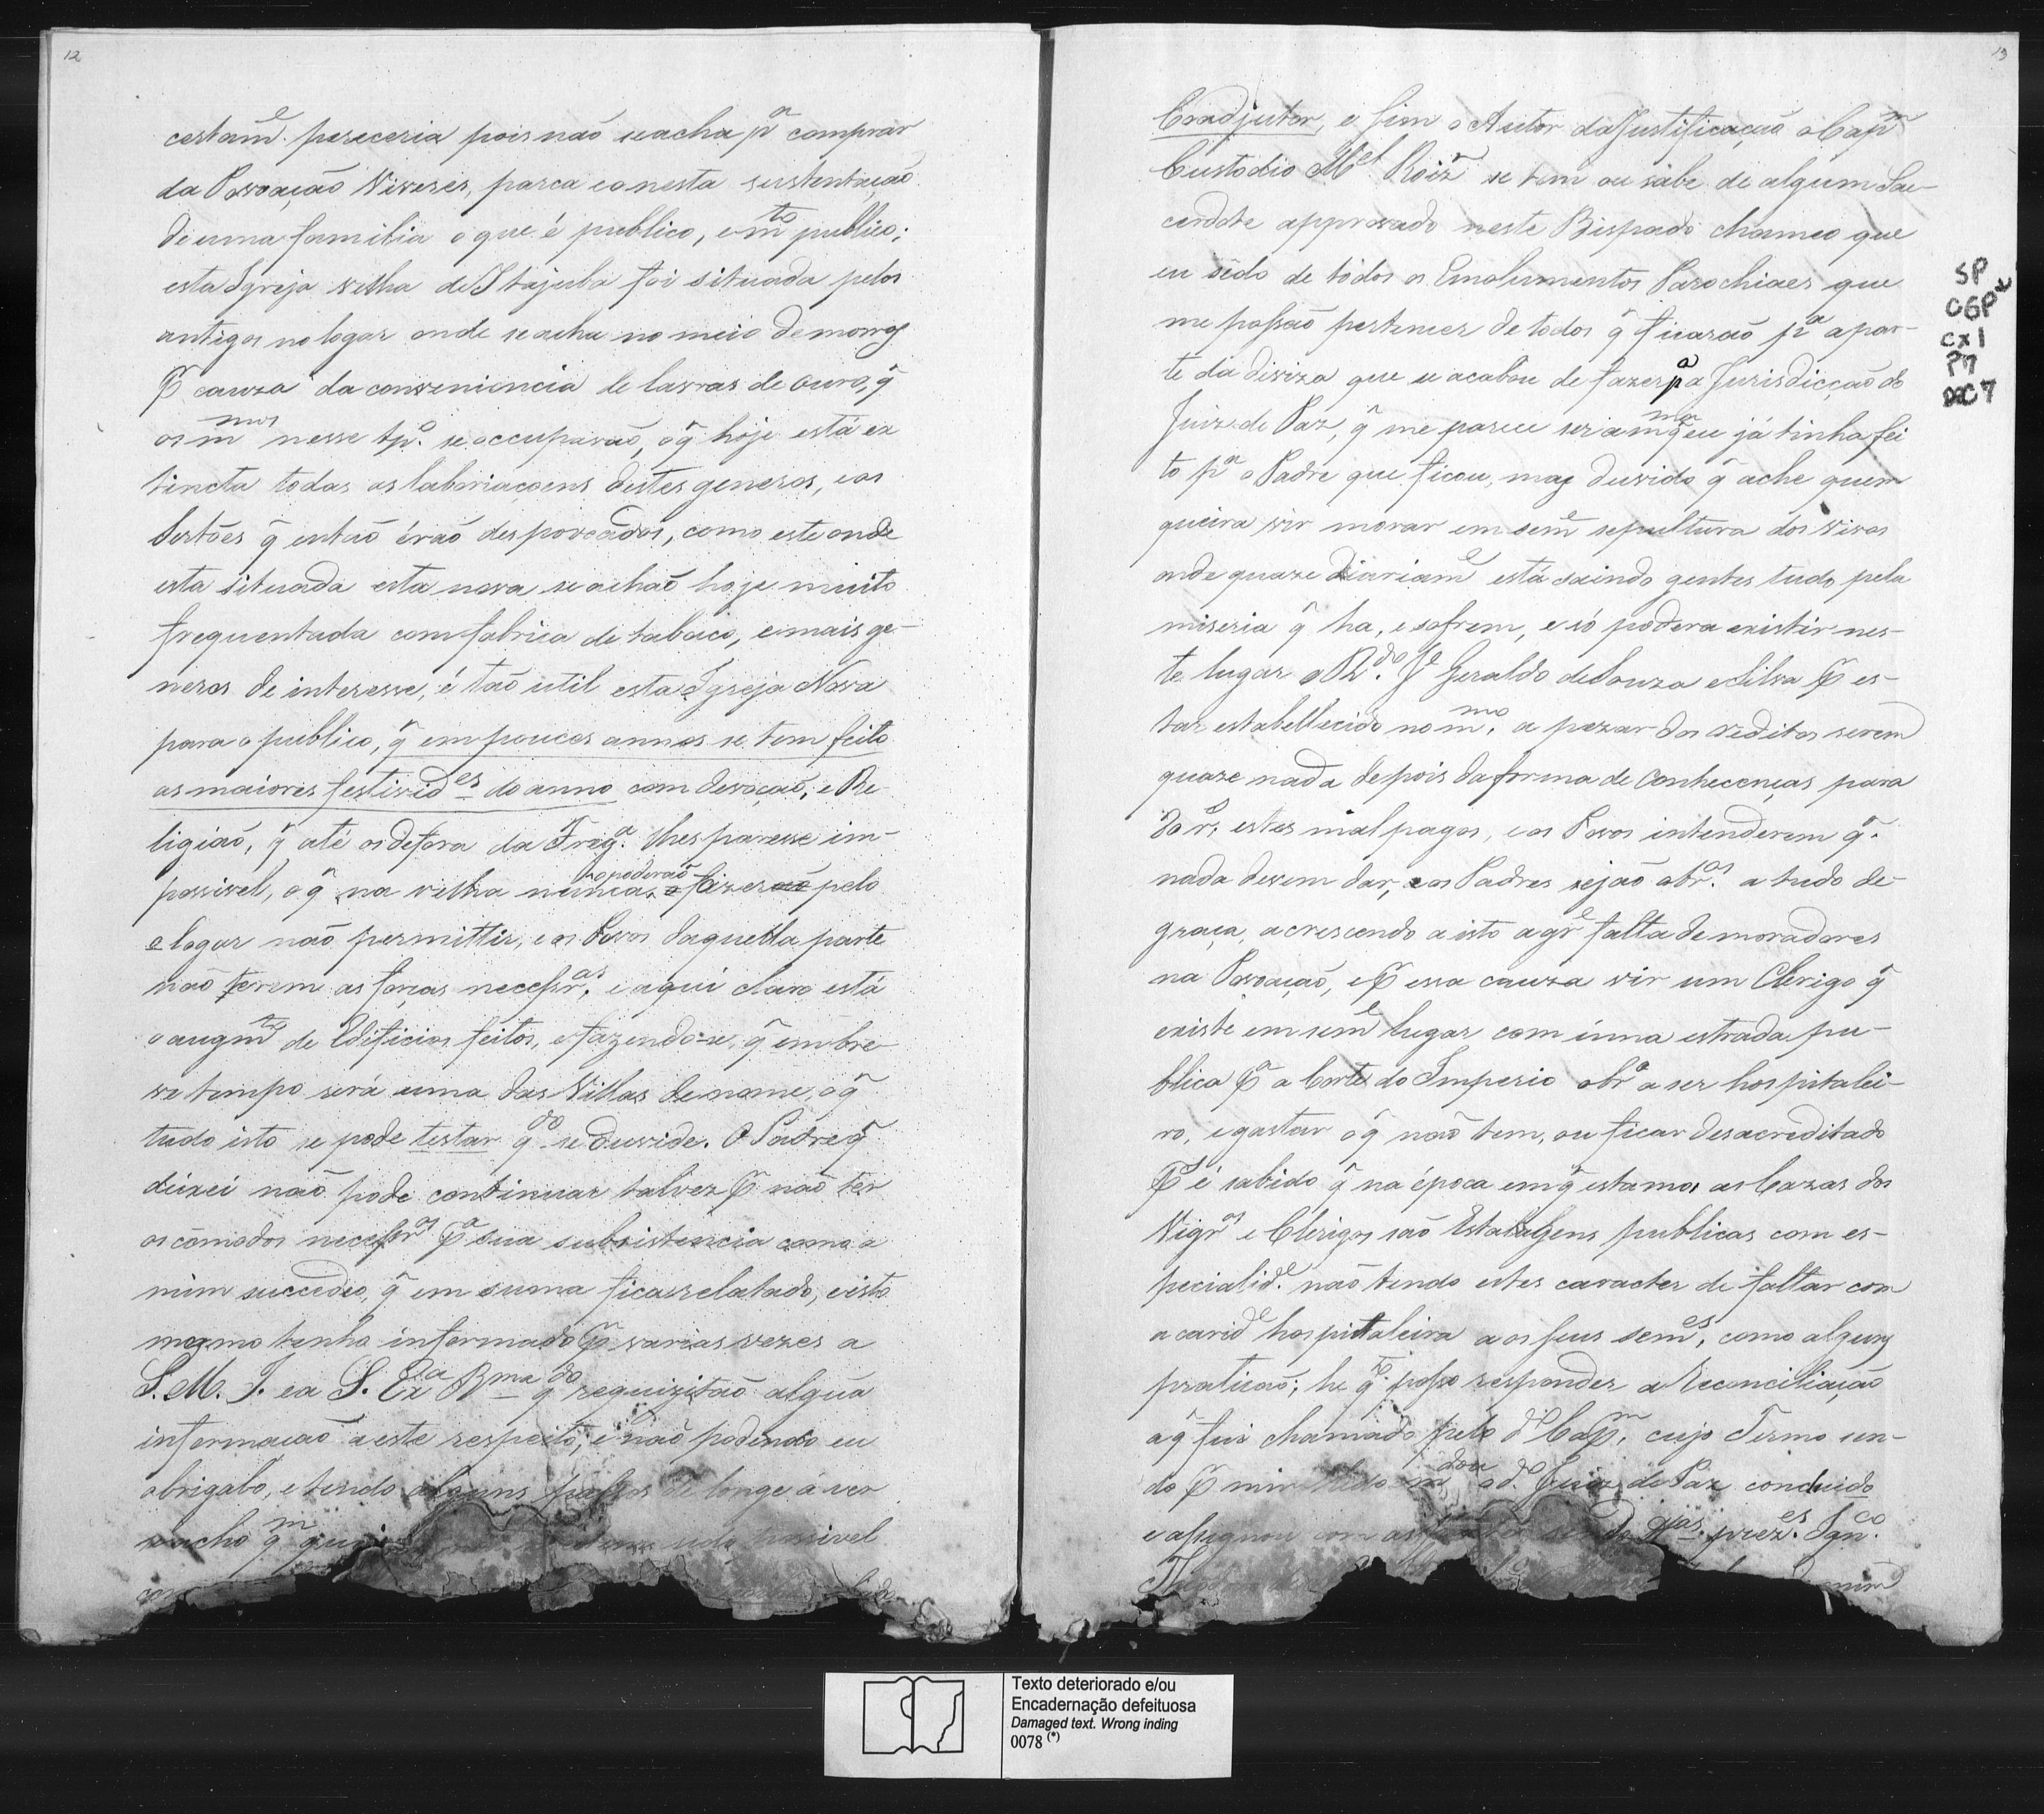 12
certam.e pereceria pois não se acha p.a comprar
da Povoação Viveres, parca e onesta sustentação
de uma familia o que é publico, e m.to publico;
esta Igreja velha de Itajuba foi situada pelos
antigos no logar onde se acha no meio de morros
p causa da conveniencia de lavras de ouro, q̃
os m.mos nesse tp.o se occupavão, o q̃ hoje está ex
tincta todas as laboriaçoens destes generos, e os
Sertões q̃ então érão despovoádos, como este onde
esta situada esta nova se achão hoje muito
frequentada com fabrica de tabaco, e mais ge-
neros de interesse, é tão util esta Igreja Nova
para o publico, q̃ em poucos annos se tem feito
as maiores festivid.es do anno com devoção, e Re
ligião, q̃ até os de fora da Freg.a lhes paresse im-
possivel, o q̃ na velha nunca o poderaõ fizerão pelo
o logar não permittir, e os Povos daquella parte
não terem as forças necessr.as e aqui claro está
o augm.to de Edificios feitos, e fazendo-se, q̃ em bre-
ve tempo será uma das Villas de nome, o q̃
tudo isto se pode testar q.do se duvide. O Padre q̃
deixei não póde continuar talvez p não ter
os cómodos necessr.os p.a sua subsistencia como a
mim succedeo, q̃ em suma fica relatado, e isto
mesmo tenho informado p varias vezes a
S. M. I. e a S. Ex.a R.ma q.do requizitão algũa
informação a este respeito, e não podendo eu
obrigalo, e tendo alguns passos de longe á ver
se acho q.m possivel
13
Coadjutor, e sim o Autor da Justificação o Cap.m
Custodio M.el Roiz se tem ou sabe de algum Sa-
cerdote approvado neste Bispado chame o que
eu cedo de todos os Emolumentos Parochiaes que
me possão pertencer de todos q̃ ficarão p.a a par-
te da diviza que se acabou de fazer p.a a Jurisdicção do
Juiz de Paz, q̃ me parece ser a m.ma q̃ eu já tinha fei
to p.a o Padre que ficou, mas duvido q̃ ache quem
queira vir morar em sem.e sepultura dos vivos
onde quaze diariam.e está saindo gentes tudo pela
miseria q̃ ha, e sofrem, e só podera existir nes-
te lugar o R.do J.e Geraldo de Souza e Silva p es-
tar estabellecido no m.mo, a pezar dos reditos serem
quaze nada depois da forma de conhecenças para
estes mal pagos, e os Povos intenderem q̃.
nada devem dar, e os Padres sejão obr.os a tudo de
graça, acrescendo a isto a gr.e falta de moradores
na Povoação, e p essa cauza vir um Clerigo q̃
existe em sem.e lugar com uma estrada pu-
blica p.a a Corte do Imperio obr.o a ser hospitalei-
ro, e gastar o q̃ não tem, ou ficar desacreditado
p é sabido q̃ na época em q̃ estamos as Cazas dos
Vigr.os e Clerigos são Estalagens publicas com es-
pecialid.e não tendo estes caracter de faltar com
a carid.e hospitaleira aos seus sem.es, como alguns
praticão; he q.to posso responder a Reconciliação
a q̃ fui chamado pelo d.o Cap.m, cujo Termo sen-
do p mim lido m.dou o d.o Juiz de Paz concluido
e assignou com as prez.es Ign.co
mim
SP
CGP
CX1
P7
DC7
Texto deteriorado e/ou
Encadernação defeituosa
Damaged text. Wrong inding
0078 (*)